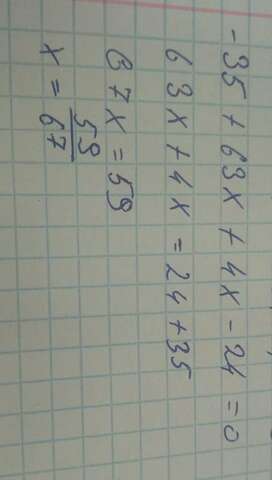 -35 + 63x + 4x - 24 = 0
63x + 4x = 24 + 35
67x = 59
x = 59/67